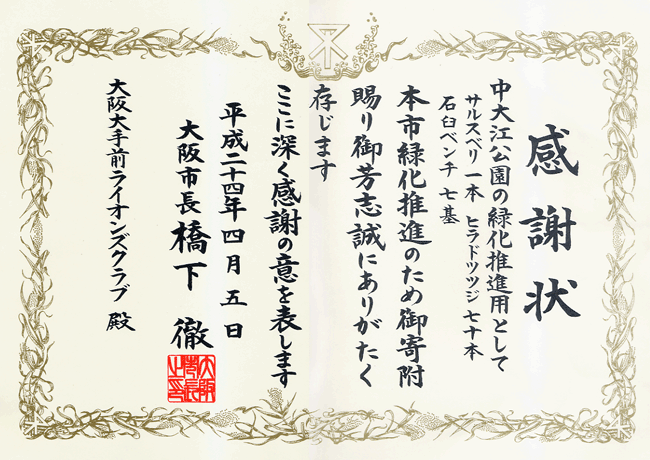 感謝状
中大江公園の緑化推進用として
サルスベリ 一本 ヒラドツツジ 七十本
石臼ベンチ 七基
本市緑化推進のため御寄附
賜り御芳志誠にありがたく
存じます
ここに深く感謝の意を表します
平成二十四年四月五日
大阪市長 橋下 徹
大阪市長之印
大阪大手前ライオンズクラブ 殿